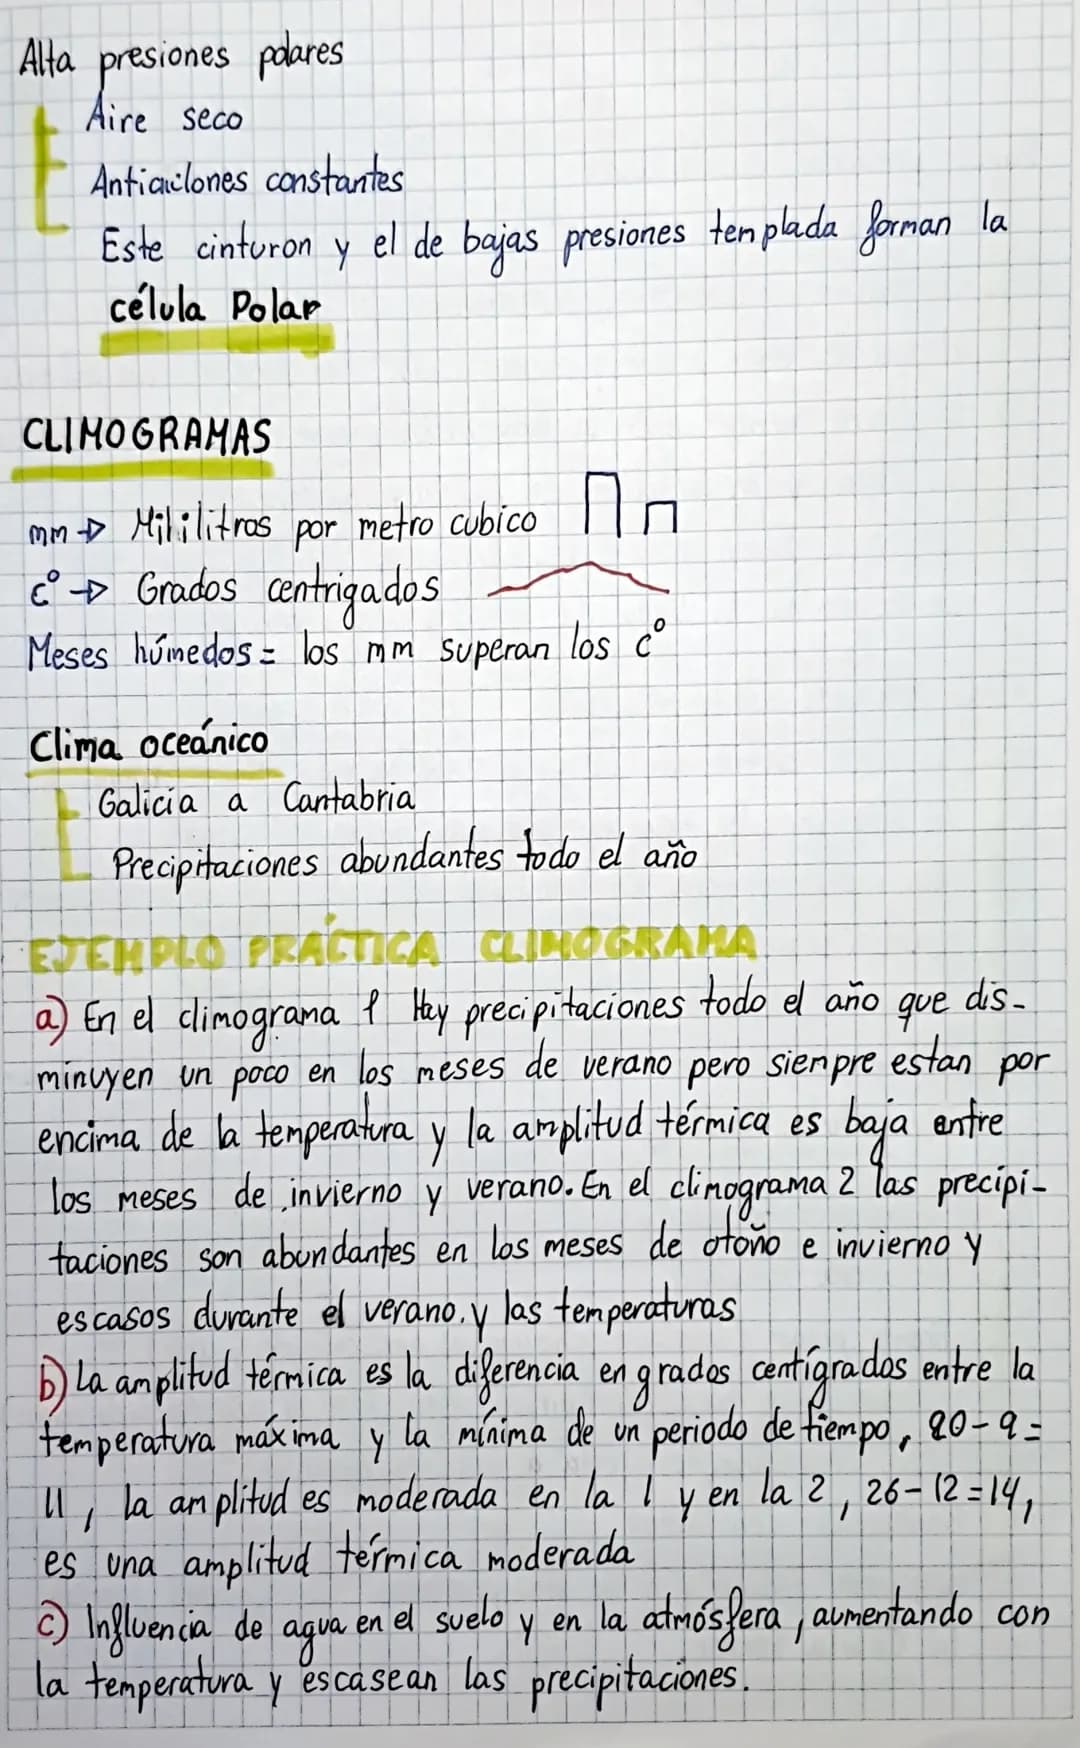 Alta presiones polares
Aire seco
Anticiclones constantes
Este cinturon y el de bajas presiones templada forman la
célula Polar
CLIMOGRAMAS
mm → Mililitros por metro cubico
cº → Grados centrigados
Meses húmedos = los mm superan los cº
Clima oceánico
Galicia a Cantabria
Precipitaciones abundantes todo el año
EJEMPLO PRÁCTICA CLIMOGRAMA
a) En el climograma 1 Hay precipitaciones todo el año que dis-
minuyen un poco en los meses de verano pero siempre estan por
encima de la temperatura y la amplitud térmica es baja entre
los meses de invierno y verano. En el climograma 2 las precipi-
taciones son abundantes en los meses de otoño e invierno y
escasos durante el verano. y las temperaturas
b) La amplitud térmica es la diferencia en grados centígrados entre la
temperatura máxima y la mínima de un periodo de tiempo, 20-9=
11, la amplitud es moderada en la 1 y en la 2, 26-12=14,
es una amplitud térmica moderada
c) Influencia de agua en el suelo y en la atmósfera, aumentando con
la temperatura y escasean las precipitaciones.